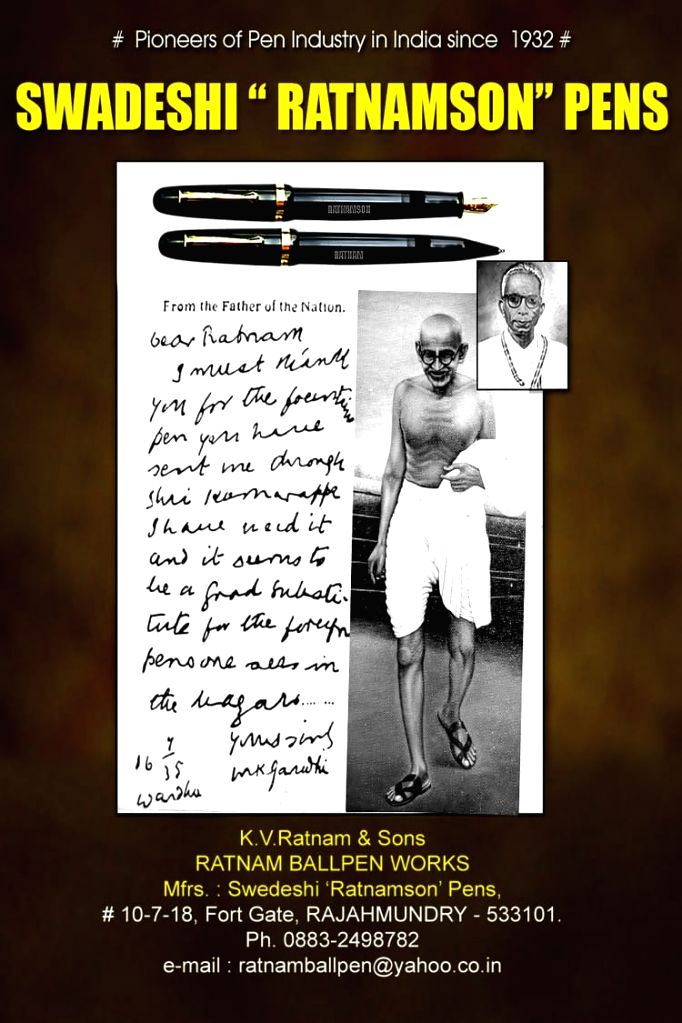 # Pioneers of Pen Industry in India since 1932 #
SWADESHI “ RATNAMSON” PENS
RATNAMSON
RATNAM
From the Father of the Nation.
Dear Ratnam
I must thank
you for the fountain
pen you have
sent me through
Shri Kumarappa
I have used it
and it seems to
be a good substi-
tute for the foreign
pens one sees in
the bazars......
yours sinly
16 7/35
MKGandhi
Wardha
K.V.Ratnam & Sons
RATNAM BALLPEN WORKS
Mfrs. : Swedeshi ‘Ratnamson’ Pens,
# 10-7-18, Fort Gate, RAJAHMUNDRY - 533101.
Ph. 0883-2498782
e-mail : ratnamballpen@yahoo.co.in